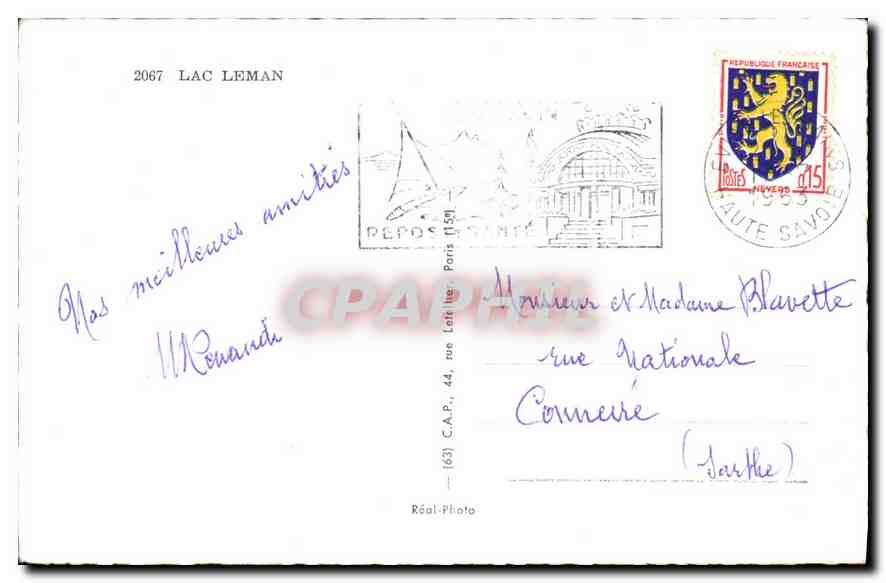 2067 LAC LEMAN
REPUBLIQUE FRANÇAISE
POSTES 0,15
NEVERS
1963
HAUTE SAVOIE
REPOS SANTÉ
Nos meilleures amitiés
CPAPHIL
Monsieur et Madame Blavette
rue Nationale
Connerré
(Sarthe)
(63) C.A.P., 44, rue Letellier, Paris (15e)
Réal-Photo